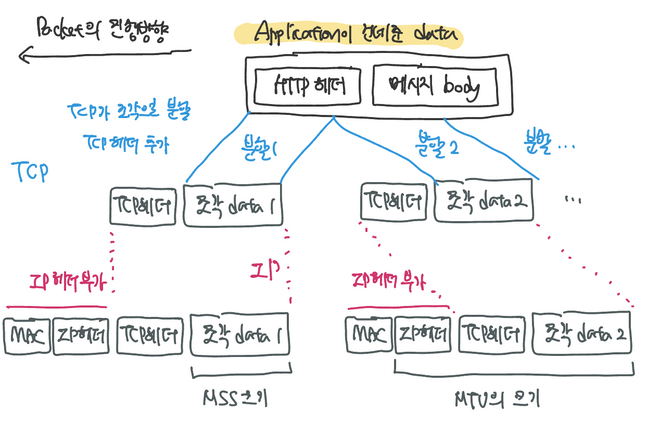 Packet의 진행방향
Application이 건네준 data
HTTP 헤더
메시지 body
TCP가 조각으로 분할
TCP 헤더 추가
분할1
분할2
분할...
TCP
TCP헤더
조각 data 1
TCP헤더
조각 data 2
...
IP헤더 부가
IP
IP헤더 부가
MAC
IP헤더
TCP헤더
조각 data 1
MAC
IP헤더
TCP헤더
조각 data 2
MSS크기
MTU의 크기